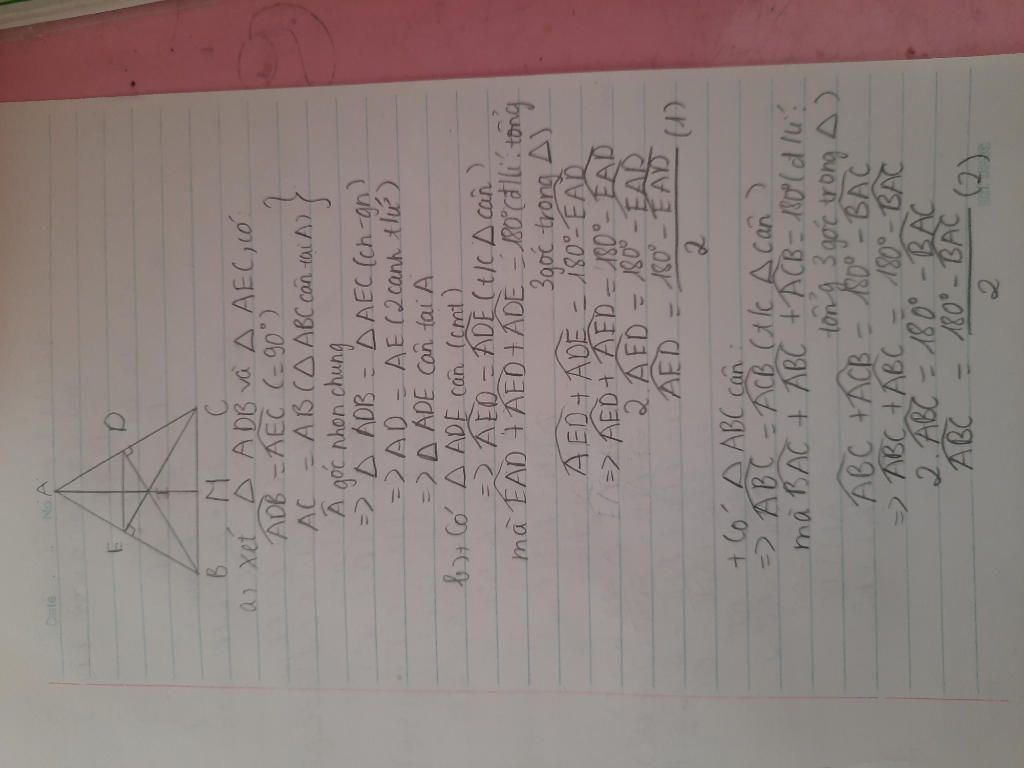 No.
Date
A
E
D
I
B M C
a) xét △ ADB và △ AEC, có:
ADB = AEC (=90°)
AC = AB (△ ABC cân tại A) }
A góc nhọn chung
=> △ ADB = △ AEC (ch-gn)
=> AD = AE (2 cạnh t/ứ)
=> △ ADE cân tại A
b) + Có △ ADE cân (cmt)
=> AED = ADE (t/c △ cân)
mà EAD + AED + ADE = 180° (đ lí: tổng
3 góc trong △)
AED + ADE = 180° - EAD
=> AED + AED = 180° - EAD
2 AED = 180° - EAD
AED = 180° - EAD (1)
2
+ Có △ ABC cân:
=> ABC = ACB (t/c △ cân)
mà BAC + ABC + ACB = 180° (đ lí:
tổng 3 góc trong △)
ABC + ACB = 180° - BAC
=> ABC + ABC = 180° - BAC
2. ABC = 180° - BAC
ABC = 180° - BAC (2)
2